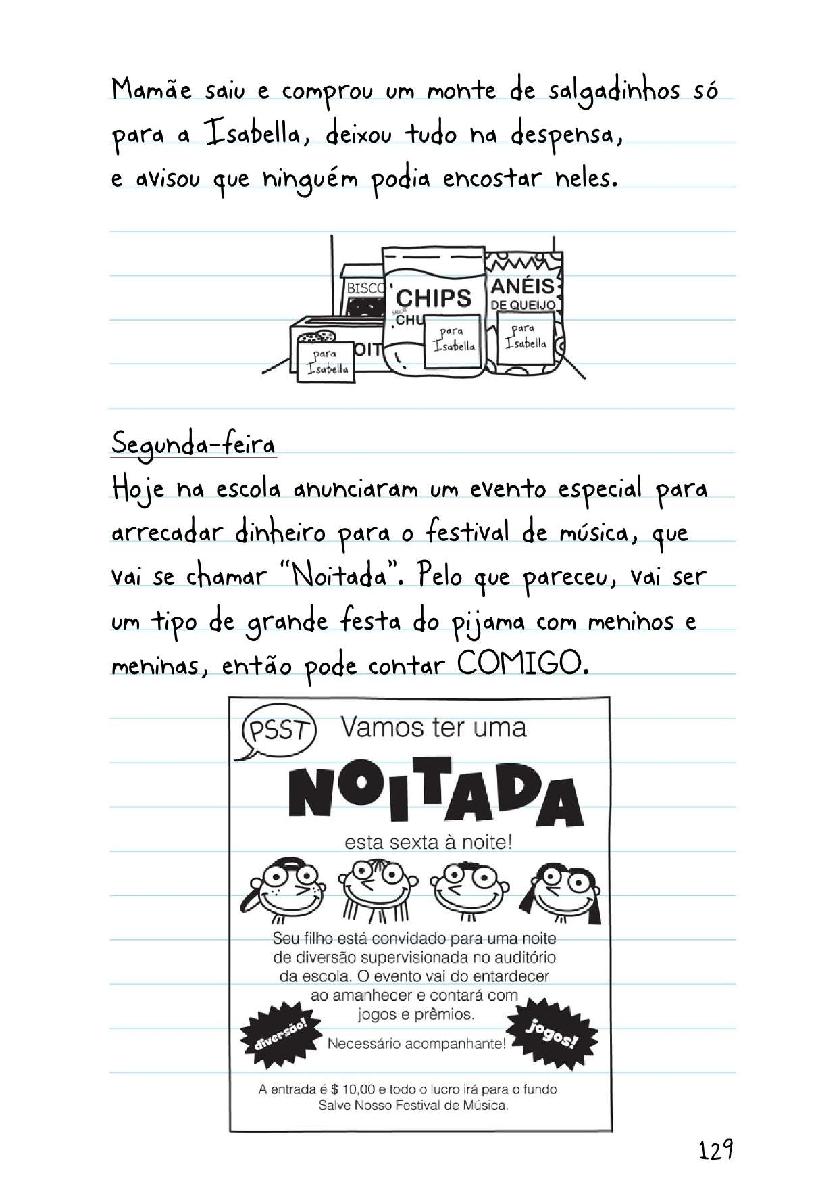 Mamãe saiu e comprou um monte de salgadinhos só
para a Isabella, deixou tudo na despensa,
e avisou que ninguém podia encostar neles.
BISCO
CHIPS
CHU
ANÉIS
DE QUEIJO
OIT
para
Isabella
para
Isabella
para
Isabella
Segunda-feira
Hoje na escola anunciaram um evento especial para
arrecadar dinheiro para o festival de música, que
vai se chamar “Noitada”. Pelo que pareceu, vai ser
um tipo de grande festa do pijama com meninos e
meninas, então pode contar COMIGO.
PSST
Vamos ter uma
NOITADA
esta sexta à noite!
Seu filho está convidado para uma noite
de diversão supervisionada no auditório
da escola. O evento vai do entardecer
ao amanhecer e contará com
jogos e prêmios.
diversão!
jogos!
Necessário acompanhante!
A entrada é $ 10,00 e todo o lucro irá para o fundo
Salve Nosso Festival de Música.
129